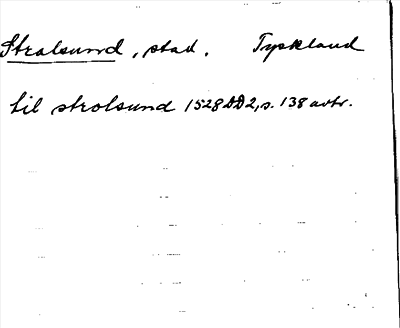 Stralsund, stad. Tyskland
til strolsund 1528 DD 2, s. 138 avtr.